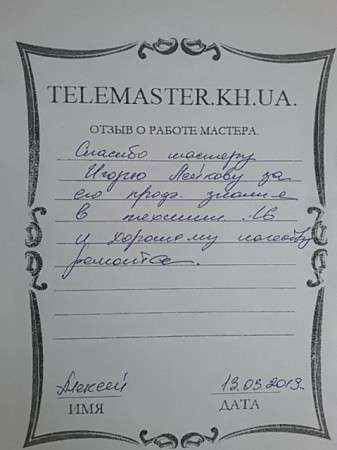 TELEMASTER.KH.UA.
ОТЗЫВ О РАБОТЕ МАСТЕРА.
Спасибо мастеру
Игорю за
его проф. знание
в технике LG
и хорошему
ремонта.
Алексей 13.03.2019
ИМЯ ДАТА